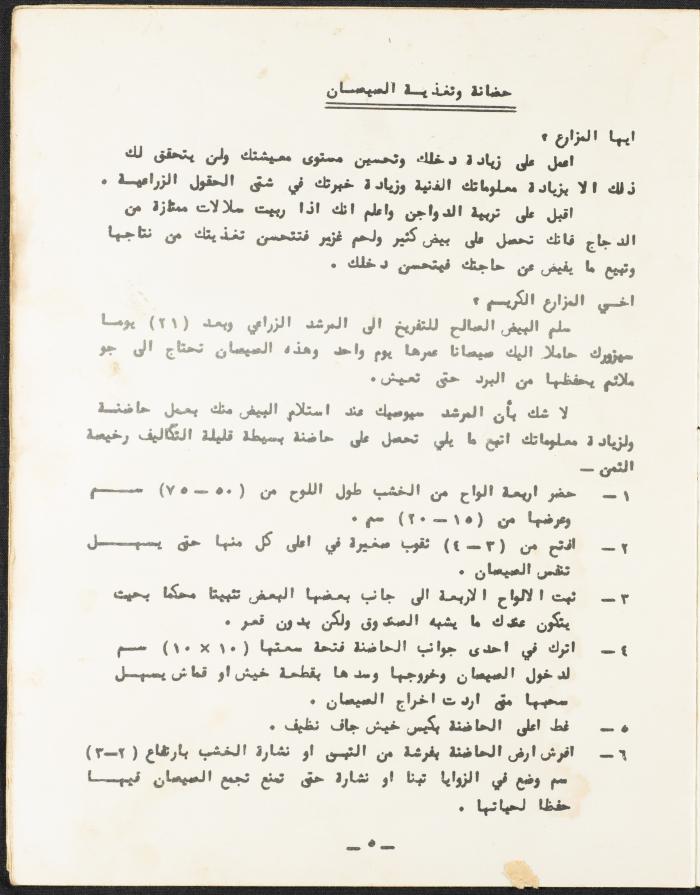 حضانة وتغذية الصيصان
ايها المزارع ؟
اعمل على زيادة دخلك وتحسين مستوى معيشتك ولن يتحقق لك
ذلك الا بزيادة معلوماتك الفنية وزيادة خبرتك في شتى الحقول الزراعية .
اقبل على تربية الدواجن واعلم انك اذا ربيت سلالات ممتازة من
الدجاج فانك تحصل على بيض كثير ولحم غزير فتتحسن تغذيتك من نتاجها
وتبيع ما يفيض عن حاجتك فيتحسن دخلك .
اخي المزارع الكريم ؟
سلم البيض الصالح للتفريخ الى المرشد الزراعي وبعد (٢١) يوما
سيزورك حاملا اليك صيصانا عمرها يوم واحد وهذه الصيصان تحتاج الى جو
ملائم يحفظها من البرد حتى تعيش .
لا شك بأن المرشد سيوصيك عند استلام البيض منك بعمل حاضنة
ولزيادة معلوماتك اتبع ما يلي تحصل على حاضنة بسيطة قليلة التكاليف رخيصة
الثمن —
١ — حضر اربعة الواح من الخشب طول اللوح من (٥٠ — ٧٥) سم
وعرضها من (١٥ — ٢٠) سم .
٢ — افتح من (٣ — ٤) ثقوب صغيرة في اعلى كل منها حتى يسهل
تنفس الصيصان .
٣ — ثبت الالواح الاربعة الى جانب بعضها البعض تثبيتا محكما بحيث
يتكون عندك ما يشبه الصندوق ولكن بدون قعر .
٤ — اترك في احدى جوانب الحاضنة فتحة سعتها (١٠ × ١٠) سم
لدخول الصيصان وخروجها وسدها بقطعة خيش او قماش يسهل
سحبها متى اردت اخراج الصيصان .
٥ — غط اعلى الحاضنة بكيس خيش جاف نظيف .
٦ — افرش ارض الحاضنة بفرشة من التبن او نشارة الخشب بارتفاع (٢—٣)
سم وضع في الزوايا تبنا او نشارة حتى تمنع تجمع الصيصان فيها
حفظا لحياتها .
— ٥ —